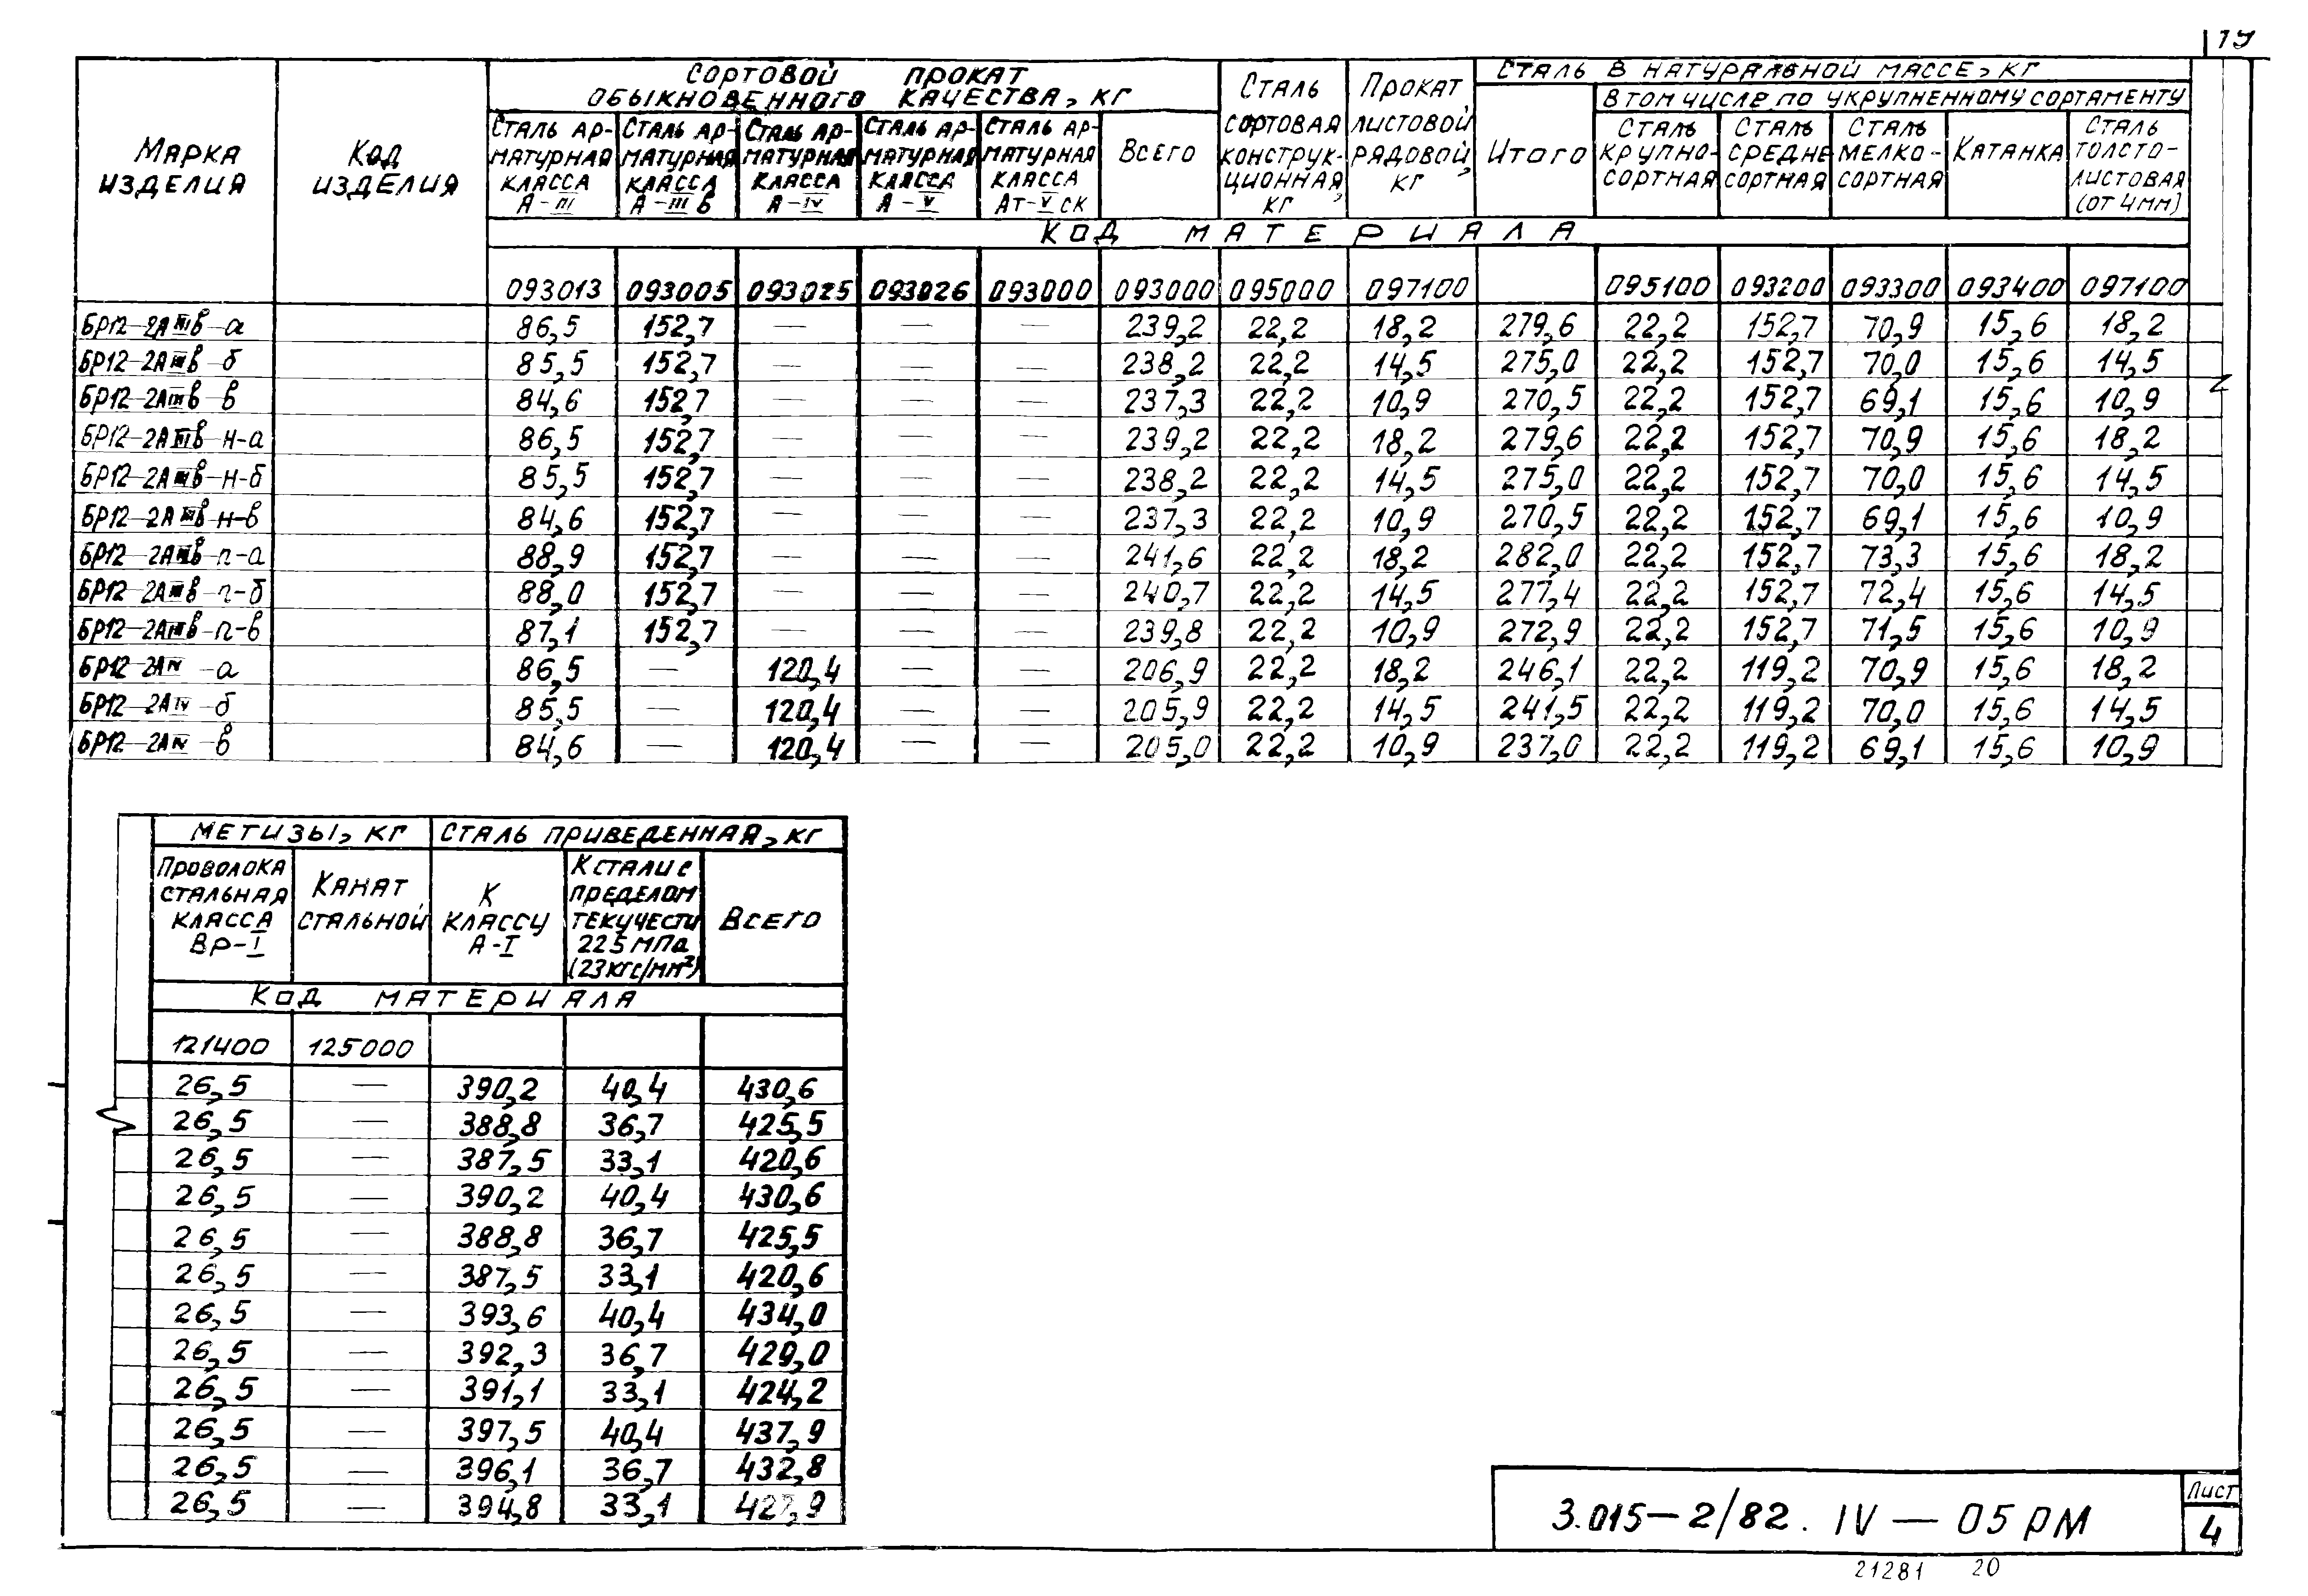 19
Марка изделия | Код изделия | Сортовой прокат обыкновенного качества, кг | Сталь сортовая конструкционная, кг | Прокат листовой рядовой, кг | Сталь в натуральной массе, кг
В том числе по укрупненному сортаменту
Сталь арматурная класса А-III | Сталь арматурная класса А-IIIв | Сталь арматурная класса А-IV | Сталь арматурная класса А-V | Сталь арматурная класса Ат-Vск | Всего | Итого | Сталь крупносортная | Сталь среднесортная | Сталь мелкосортная | Катанка | Сталь толстолистовая (от 4мм)
Код материала
093013 | 093005 | 093025 | 093026 | 093000 | 093000 | 095000 | 097100 | | 095100 | 093200 | 093300 | 093400 | 097100
БР12-2АIIIв-а | 86,5 | 152,7 | — | — | — | 239,2 | 22,2 | 18,2 | 279,6 | 22,2 | 152,7 | 70,9 | 15,6 | 18,2
БР12-2АIIIв-б | 85,5 | 152,7 | — | — | — | 238,2 | 22,2 | 14,5 | 275,0 | 22,2 | 152,7 | 70,0 | 15,6 | 14,5
БР12-2АIIIв-в | 84,6 | 152,7 | — | — | — | 237,3 | 22,2 | 10,9 | 270,5 | 22,2 | 152,7 | 69,1 | 15,6 | 10,9
БР12-2АIIIв-н-а | 86,5 | 152,7 | — | — | — | 239,2 | 22,2 | 18,2 | 279,6 | 22,2 | 152,7 | 70,9 | 15,6 | 18,2
БР12-2АIIIв-н-б | 85,5 | 152,7 | — | — | — | 238,2 | 22,2 | 14,5 | 275,0 | 22,2 | 152,7 | 70,0 | 15,6 | 14,5
БР12-2АIIIв-н-в | 84,6 | 152,7 | — | — | — | 237,3 | 22,2 | 10,9 | 270,5 | 22,2 | 152,7 | 69,1 | 15,6 | 10,9
БР12-2АIIIв-п-а | 88,9 | 152,7 | — | — | — | 241,6 | 22,2 | 18,2 | 282,0 | 22,2 | 152,7 | 73,3 | 15,6 | 18,2
БР12-2АIIIв-п-б | 88,0 | 152,7 | — | — | — | 240,7 | 22,2 | 14,5 | 277,4 | 22,2 | 152,7 | 72,4 | 15,6 | 14,5
БР12-2АIIIв-п-в | 87,1 | 152,7 | — | — | — | 239,8 | 22,2 | 10,9 | 272,9 | 22,2 | 152,7 | 71,5 | 15,6 | 10,9
БР12-2АIV-а | 86,5 | — | 120,4 | — | — | 206,9 | 22,2 | 18,2 | 246,1 | 22,2 | 119,2 | 70,9 | 15,6 | 18,2
БР12-2АIV-б | 85,5 | — | 120,4 | — | — | 205,9 | 22,2 | 14,5 | 241,5 | 22,2 | 119,2 | 70,0 | 15,6 | 14,5
БР12-2АIV-в | 84,6 | — | 120,4 | — | — | 205,0 | 22,2 | 10,9 | 237,0 | 22,2 | 119,2 | 69,1 | 15,6 | 10,9
Метизы, кг | Сталь приведенная, кг
Проволока стальная класса Вр-I | Канат стальной | К классу А-I | К стали с пределом текучести 225 МПа (23 кгс/мм²) | Всего
Код материала
121400 | 125000
26,5 | — | 390,2 | 40,4 | 430,6
26,5 | — | 388,8 | 36,7 | 425,5
26,5 | — | 387,5 | 33,1 | 420,6
26,5 | — | 390,2 | 40,4 | 430,6
26,5 | — | 388,8 | 36,7 | 425,5
26,5 | — | 387,5 | 33,1 | 420,6
26,5 | — | 393,6 | 40,4 | 434,0
26,5 | — | 392,3 | 36,7 | 429,0
26,5 | — | 391,1 | 33,1 | 424,2
26,5 | — | 397,5 | 40,4 | 437,9
26,5 | — | 396,1 | 36,7 | 432,8
26,5 | — | 394,8 | 33,1 | 427,9
3.015-2/82. IV — 05 РМ
Лист
4
21281 20